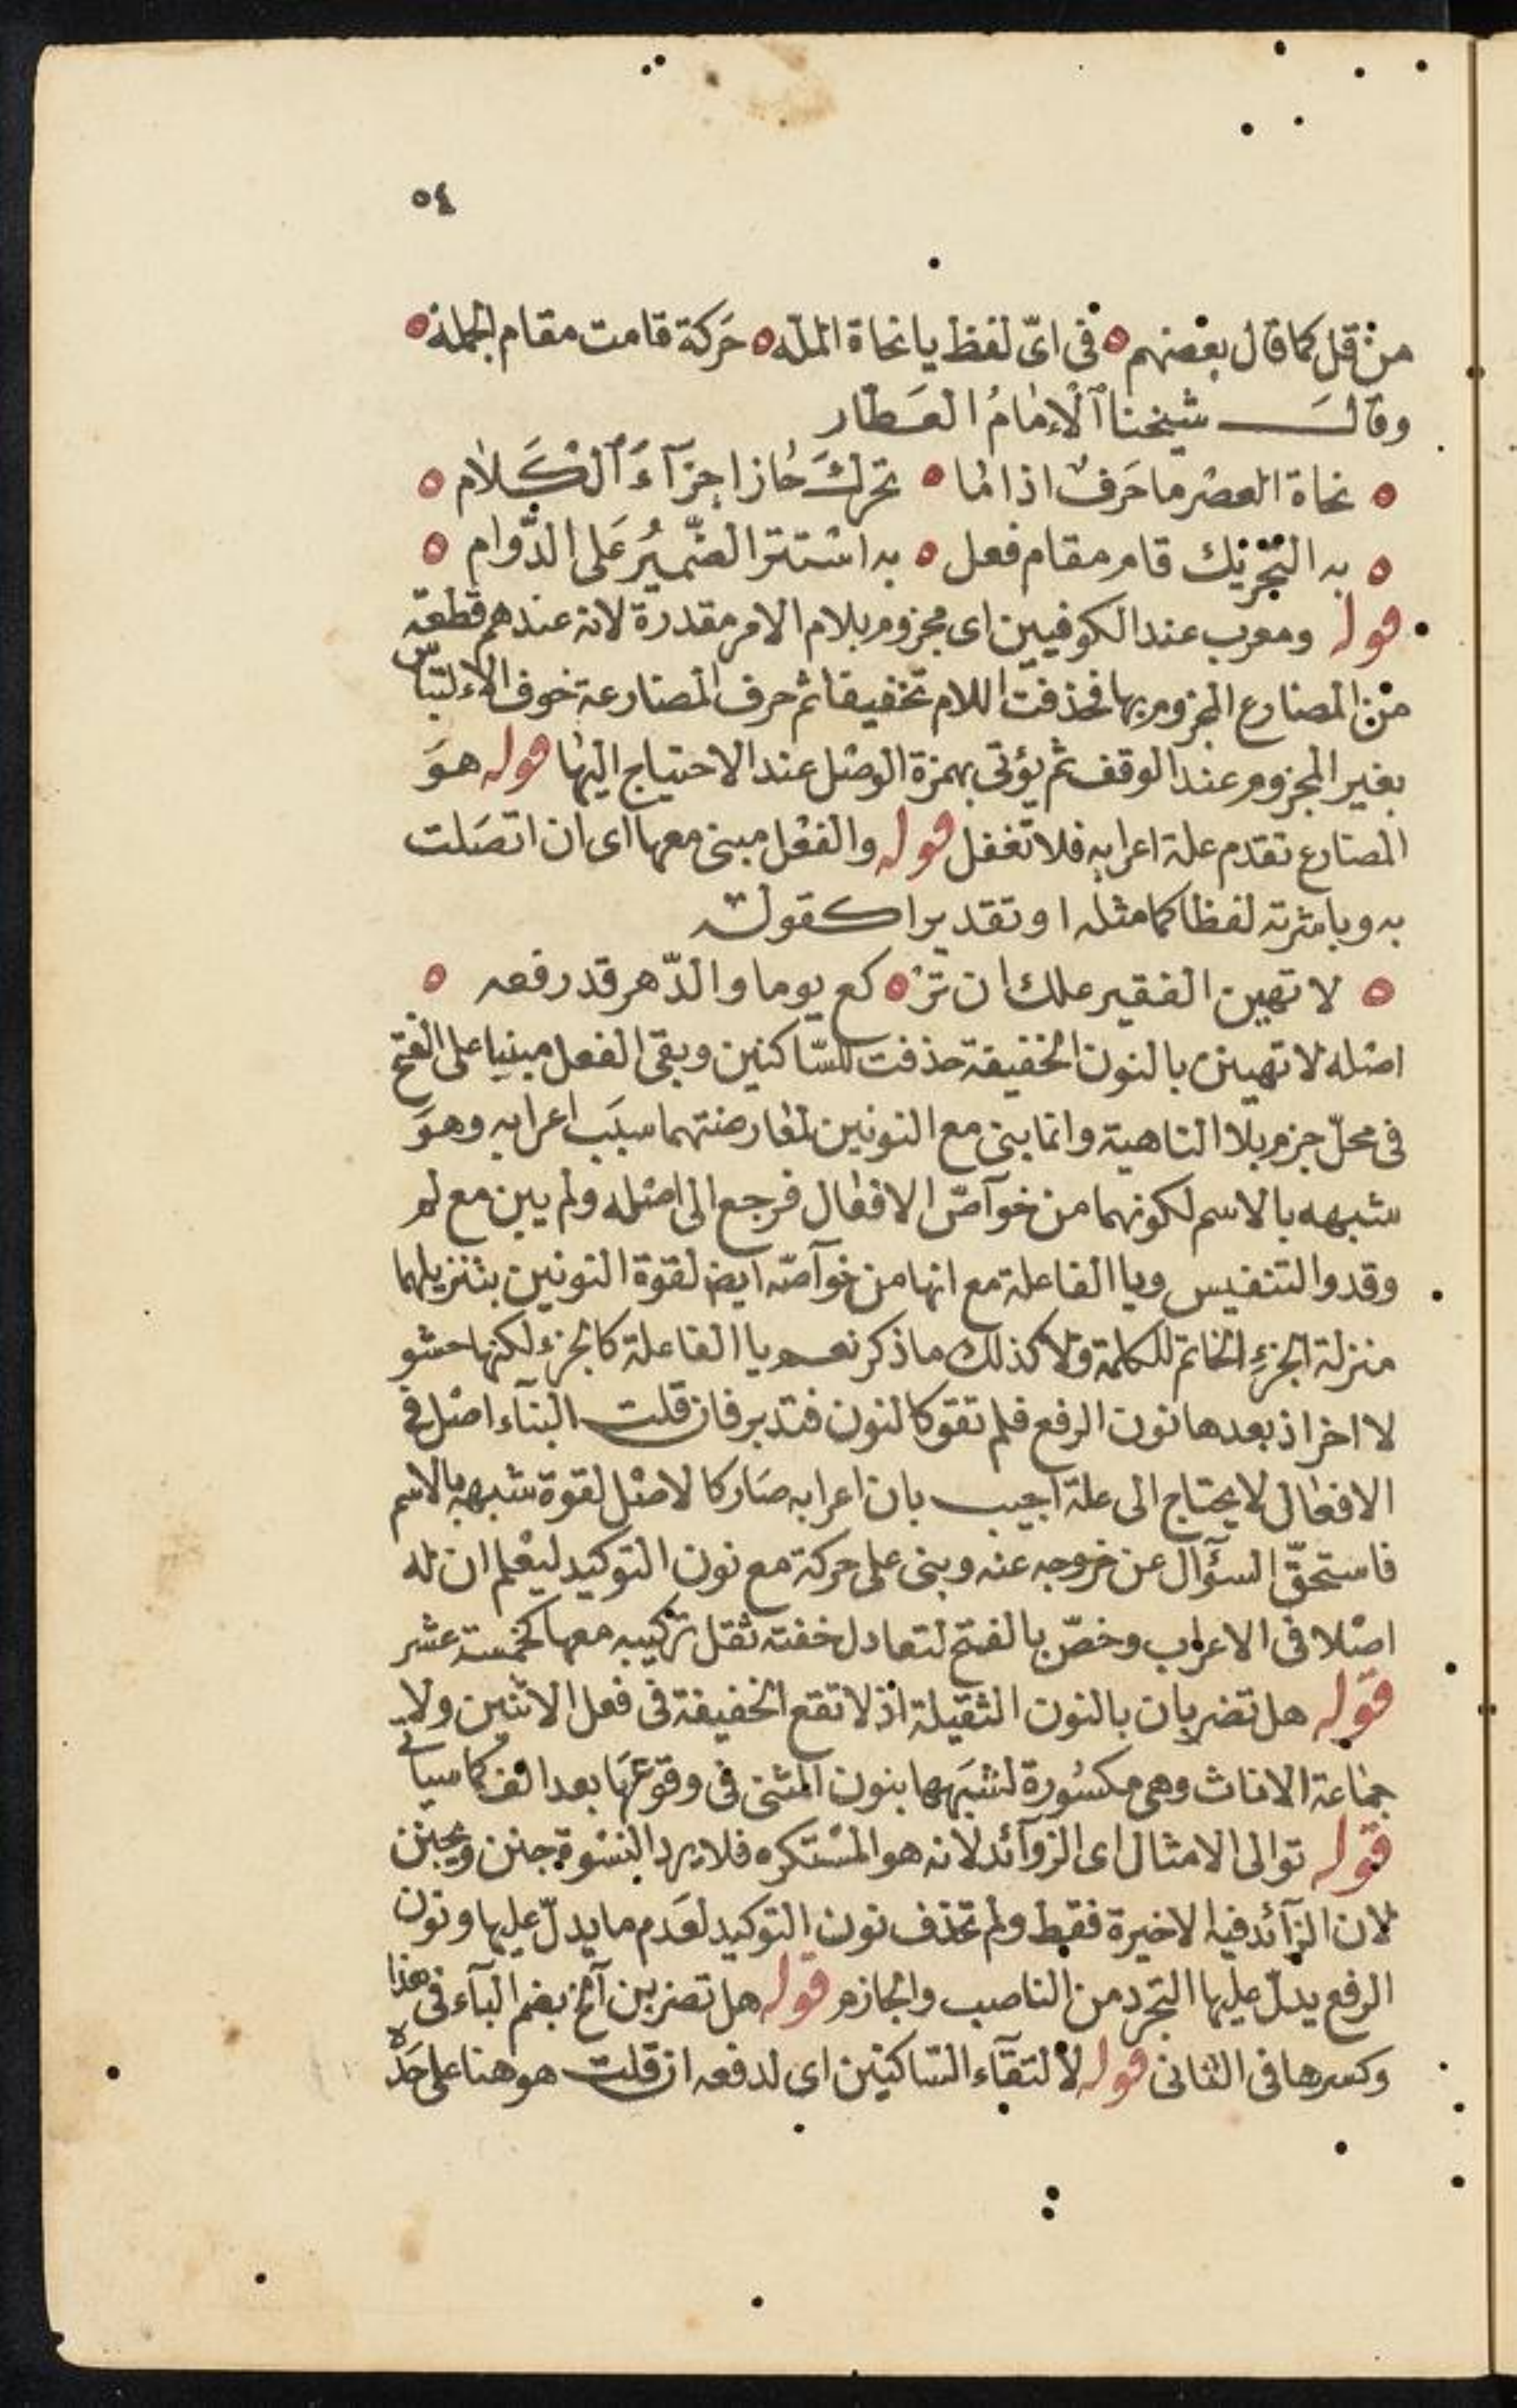 ٥٤
من قل كما قال بعضهم ه فى اىّ لفظ يا نحاة الملّه ه حَركة قامت مقام الجملة ه
وقال شيخنا الإمامُ العَطّار
ه نحاة العصر ما حَرفٌ اذا ما ه تحركَ حاز اجزآءَ الكَلام ه
ه به التحريك قام مقام فعل ه به استتر الضّميرُ عَلى الدّوام ه
قوله ومعرب عند الكوفيين اى مجزوم بلام الامر مقدرة لانه عندهم قطعة
من المضارع المجزوم بها فحذفت اللام تخفيفا ثم حرف المضارعة خوف الالتباس
بغير المجزوم عند الوقف ثم يؤتى بهمزة الوصل عند الاحتياج اليها قوله هوَ
المضارع تقدم علة اعرابه فلا تغفل قوله والفعل مبنى معها اى ان اتصَلت
به وباشرته لفظا كما مثله او تقديرا كقوله
ه لا تهين الفقير علك ان تر ه كع يوما والدّهر قد رفعه ه
اصله لا تهينن بالنون الخفيفة حذفت للسّاكنين وبقى الفعل مبنيا على الفتح
فى محلّ جزم بلا الناهية وانما بنى مع النونين لمعارضتهما سبَب اعرابه وهوَ
شبهه بالاسم لكونهما من خوآصّ الافعال فرجع الى اصله ولم يبن مع لم
وقد والتنفيس ويا الفاعلة مع انها من خوآصّه ايض لقوة النونين بتنزيلهما
منزلة الجزءِ الخاتم للكلمة ولا كذلك ما ذكر نعم يا الفاعلة كالجزء لكنها حشو
لا اخر اذ بعدها نون الرفع فلم تقو كالنون فتدبر فان قلت البنآء اصل فى
الافعال لا يحتاج الى علة اجيب بان اعرابه صَار كالاصل لقوة شبهه بالاسم
فاستحقّ السؤال عن خروجه عنه وبنى على حركة مع نون التوكيد ليعلم ان له
اصلا فى الاعراب وخصّ بالفتح لتعادل خفته ثقل تركيبه معها كخمسة عشر
قوله هل تضربان بالنون الثقيلة اذ لا تقع الخفيفة فى فعل الاثنين ولا
جماعة الاناث وهى مكسُورة لشبَهها بنون المثنى فى وقوعهَا بعد الف كما سياتى
قوله توالى الامثال اى الزوآئد لانه هو المستكره فلا يرد النسْوة جنن ويجنن
لان الزآئد فيه الاخيرة فقط ولم تحذف نون التوكيد لعَدم ما يدلّ عليها ونون
الرفع يدلّ عليها التجرد من الناصب والجازم قوله هل تضربن آلخ بضم البآء فى هذا
وكسرها فى الثانى قوله لالتقآء السّاكنين اى لدفعه ان قلت هو هنا على حَدّه